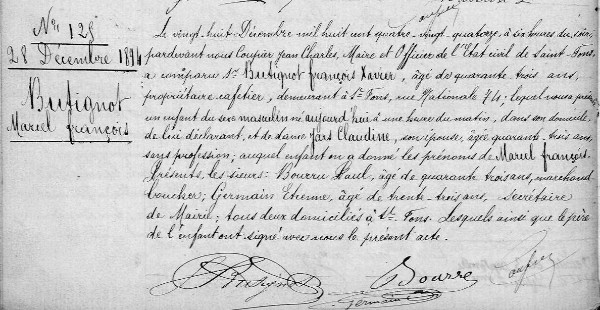 No 125
28 Décembre 1894
Bufignot
Marcel françois
Le vingt-huit Décembre mil huit cent quatre-vingt-quatorze, à six heures du soir,
pardevant nous Coupier Jean Charles, Maire et Officier de l'État civil de Saint-Fons,
a comparu sr. Bufignot françois Xavier, âgé de quarante trois ans,
propriétaire cafetier, demeurant à St. Fons, rue Nationale 74; lequel nous a présenté
un enfant du sexe masculin né aujourd'hui à une heure du matin, dans son domicile,
de lui déclarant, et de dame Jars Claudine, son épouse, âgée quarante-trois ans,
sans profession; auquel enfant on a donné les prénoms de Marcel françois.
Présents, les sieurs: Bourru Paul, âgé de quarante trois ans, marchand
boucher; Germain Etienne, âgé de trente-trois ans, secrétaire
de Mairie; tous deux domiciliés à St. Fons. Lesquels ainsi que le père
de l'enfant ont signé avec nous le présent acte.
Bufignot Bourru
Germain